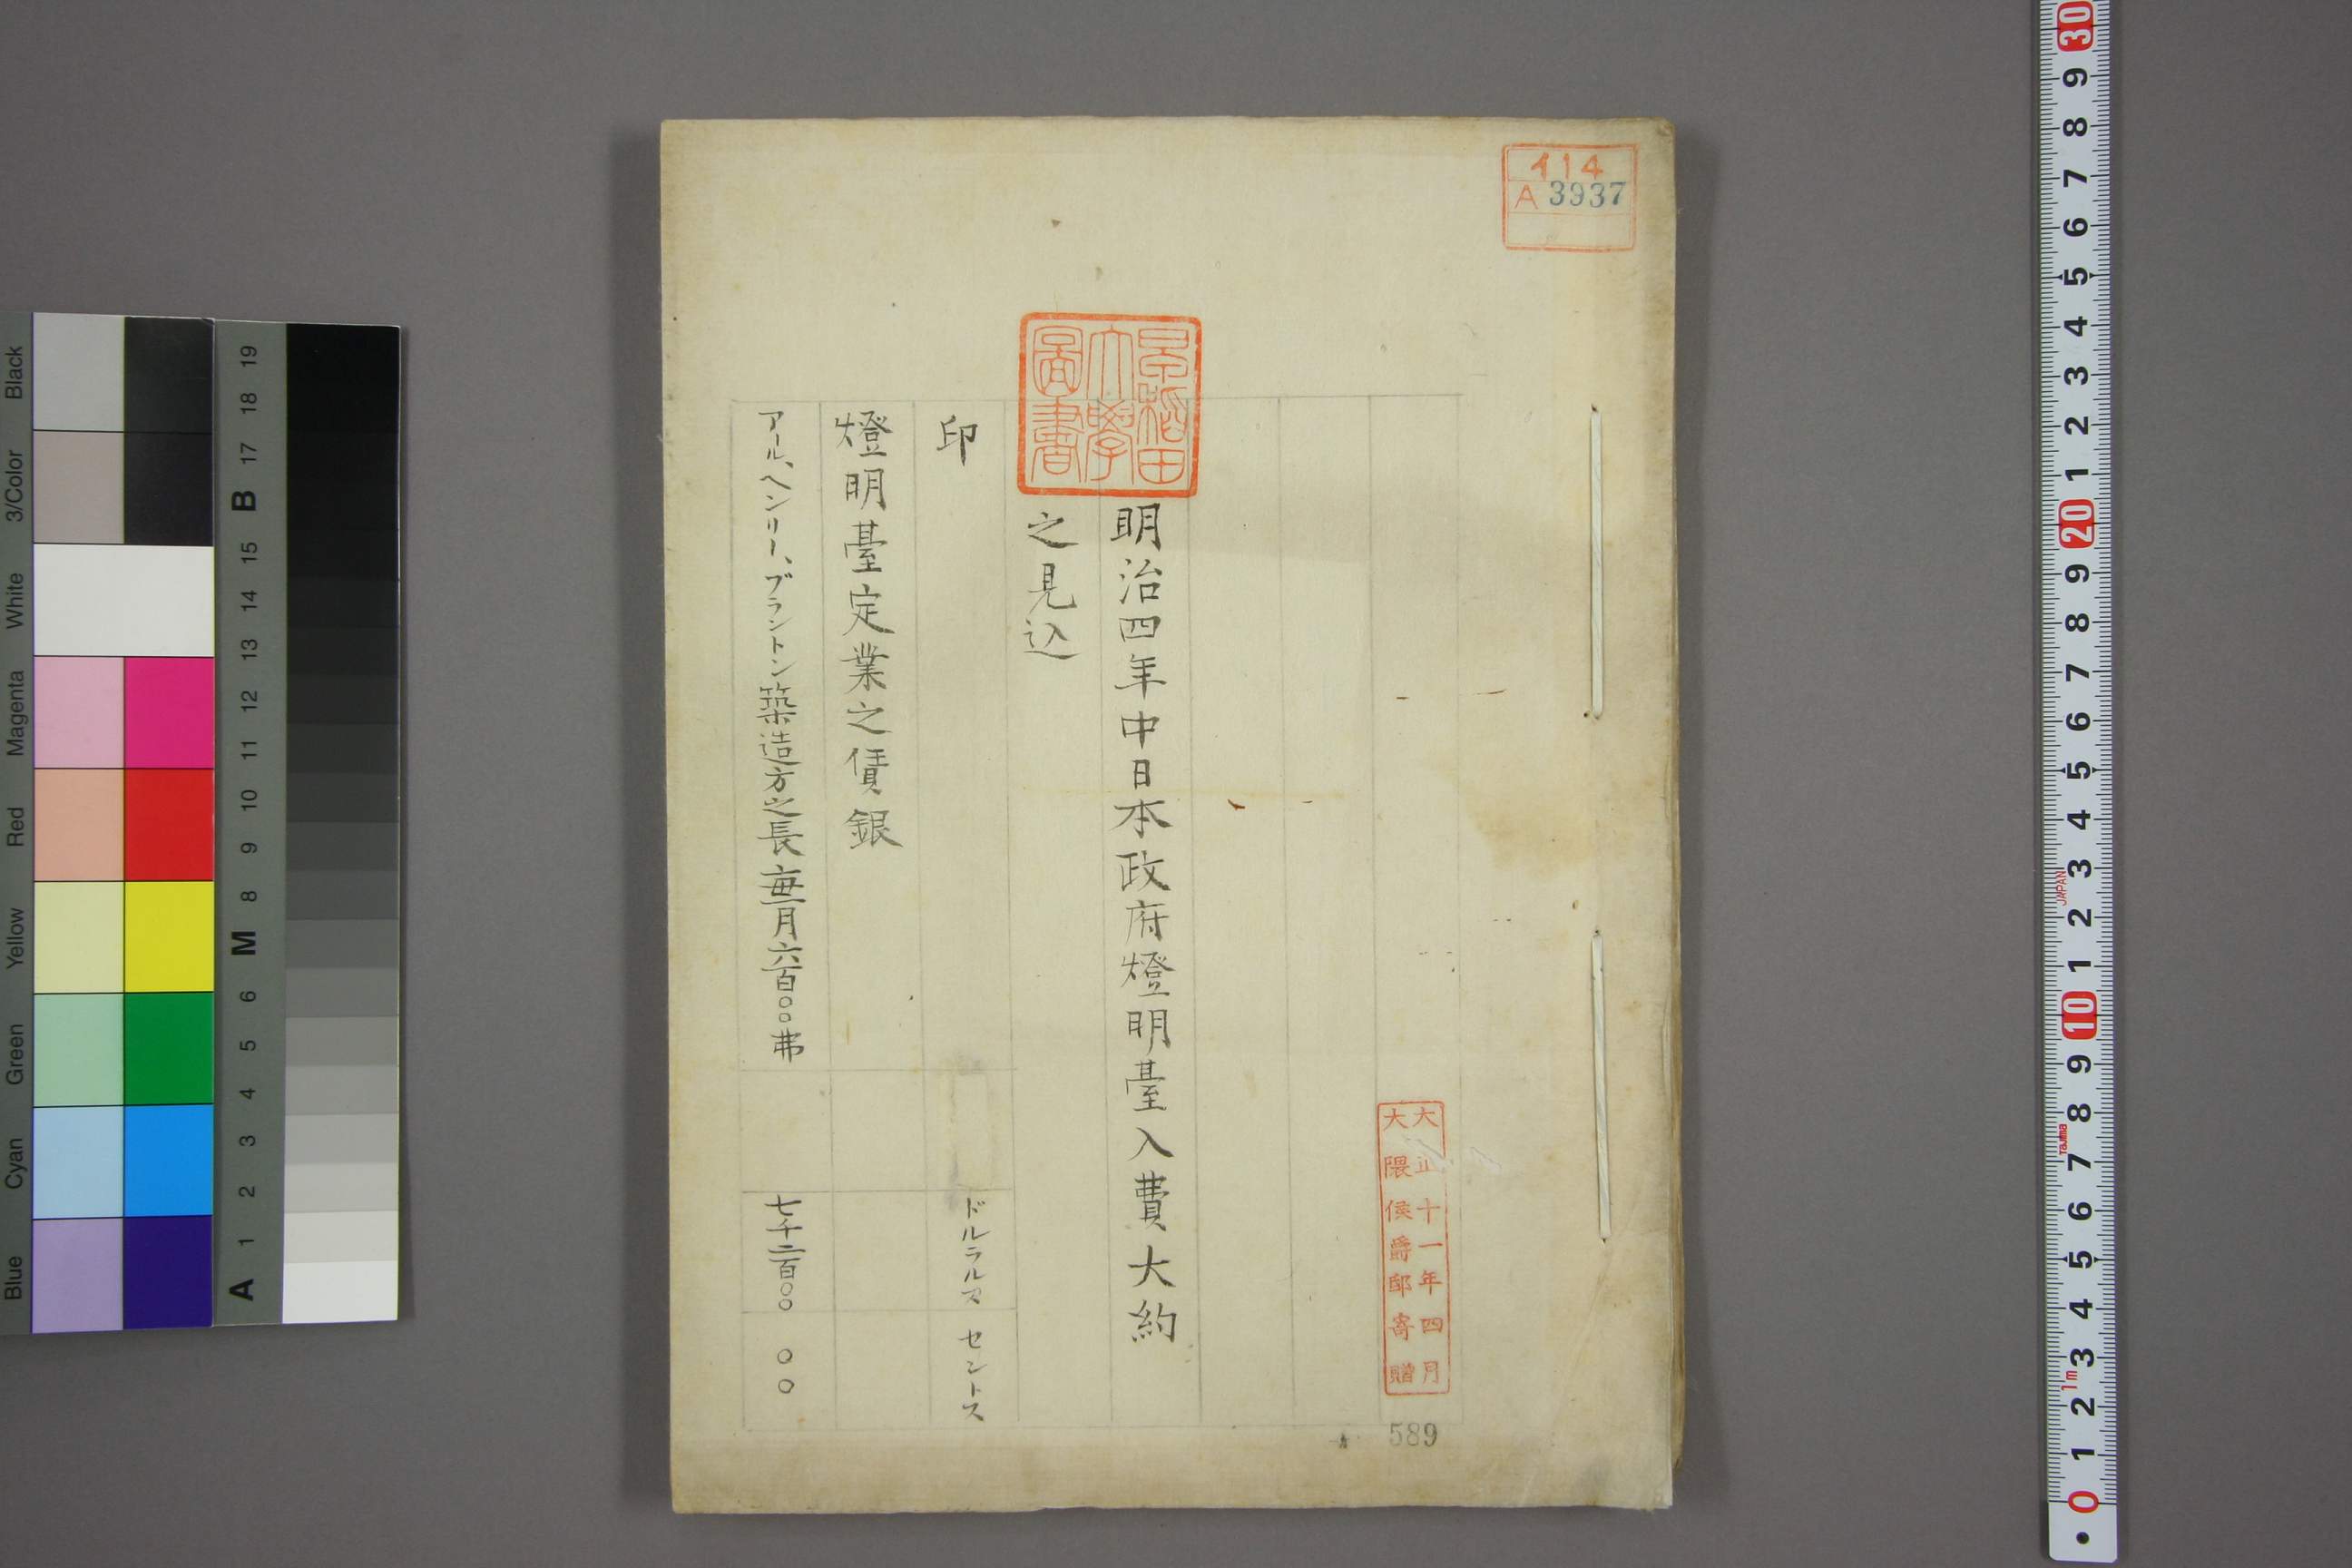 イ14
A 3937
早稲田
大學
圖書
明治四年中日本政府燈明臺入費大約
之見込
印
ドルラルス セントス
燈明臺定業之賃銀
アール、ヘンリー、ブラントン築造方之長毎一月六百〇〇弗
七千二百〇〇 〇〇
大正十一年四月
大隈侯爵邸寄贈
589
Black
3/Color
White
Magenta
Red
Yellow
Green
Cyan
Blue
19
18
17
B
15
14
13
12
11
10
9
8
M
6
5
4
3
2
1
A
30
9
8
7
6
5
4
3
2
1
20
9
8
7
6
5
4
3
2
1
10
9
8
7
6
5
4
3
2
1
0
JAPAN
Tajima
1m